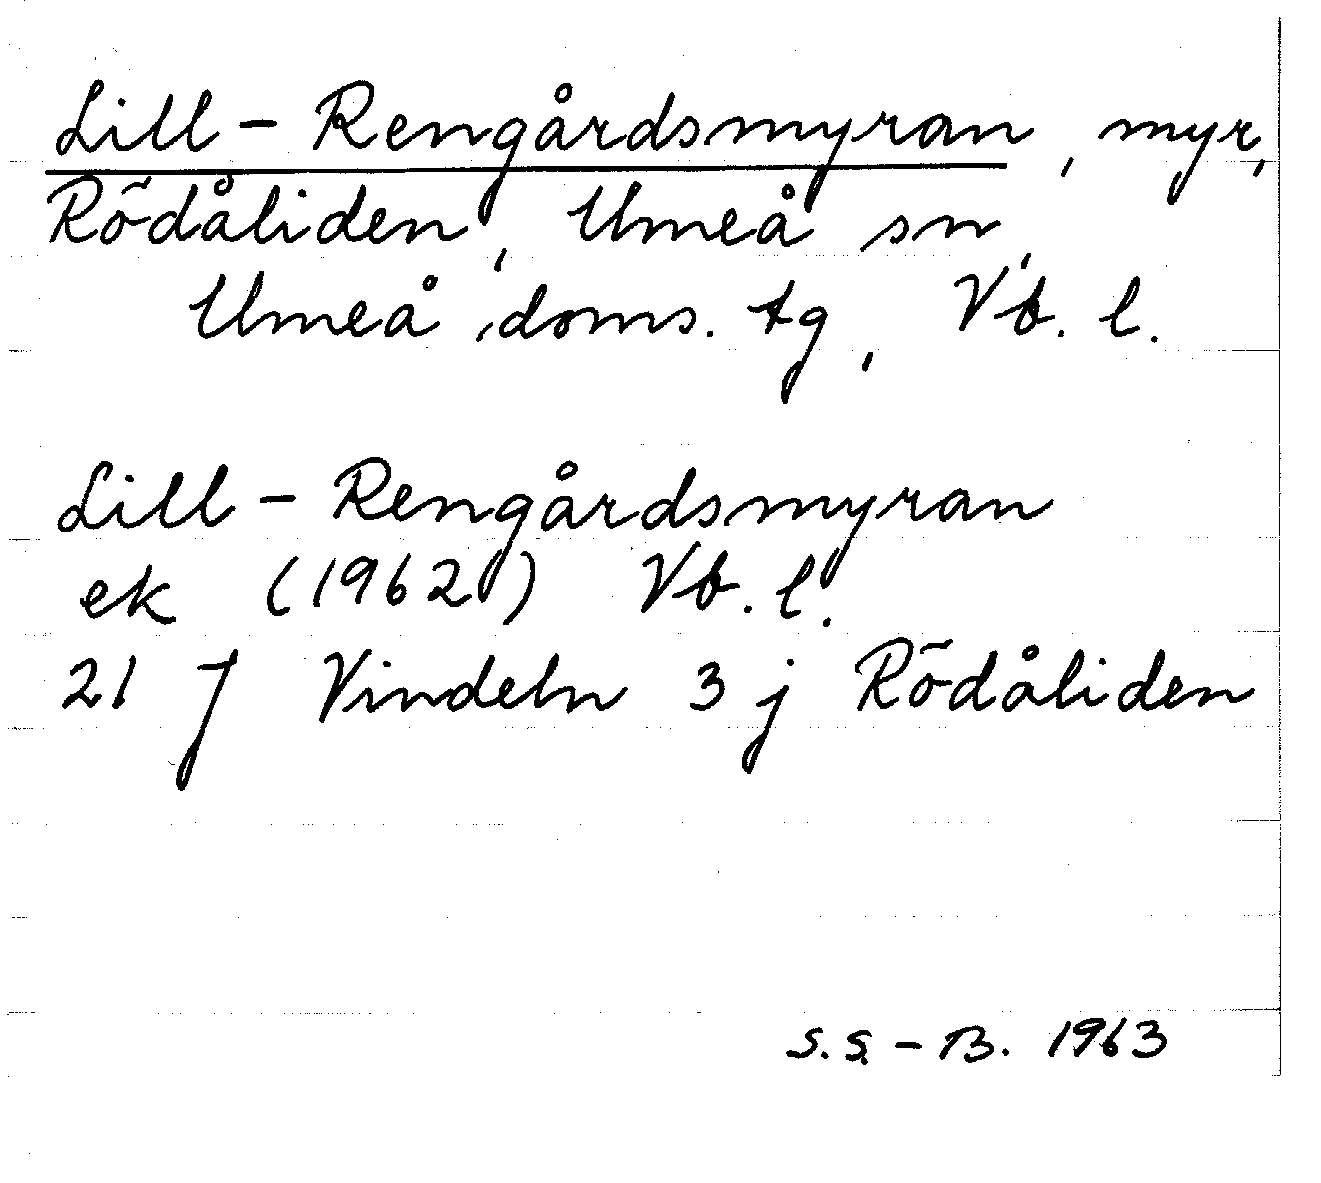 Lill-Rengårdsmyran, myr,
Rödåliden, Umeå sn,
Umeå doms. tg, Vb. l.
Lill-Rengårdsmyran
ek (1962) Vb. l.
21 J Vindeln 3 j Rödåliden
S.S.-B. 1963